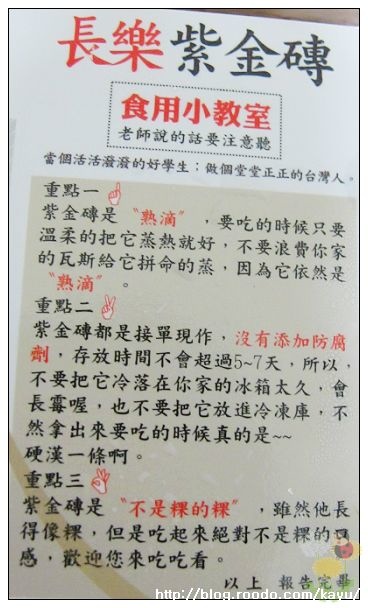 長樂紫金磚
食用小教室
老師說的話要注意聽
當個活活潑潑的好學生：做個堂堂正正的台灣人。
重點一
紫金磚是〝熟滴〞，要吃的時候只要
溫柔的把它蒸熱就好，不要浪費你家
的瓦斯給它拼命的蒸，因為它依然是
〝熟滴〞。
重點二
紫金磚都是接單現作，沒有添加防腐
劑，存放時間不會超過5~7天，所以，
不要把它冷落在你家的冰箱太久，會
長霉喔，也不要把它放進冷凍庫，不
然拿出來要吃的時候真的是~~
硬漢一條啊。
重點三
紫金磚是〝不是粿的粿〞，雖然他長
得像粿，但是吃起來絕對不是粿的口
感，歡迎您來吃吃看。
以上 報告完畢
http://blog.roodo.com/kayu/